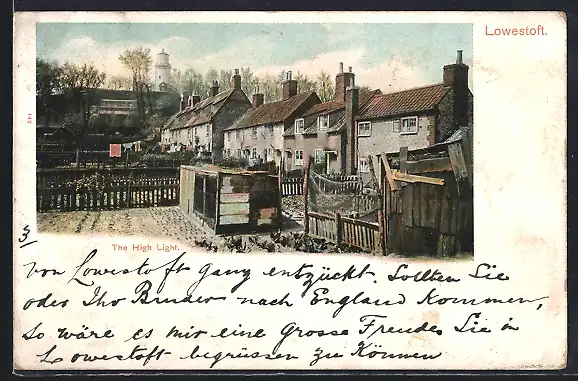 Lowestoft.
The High Light.
3/
von Lowestoft ganz entzückt. Sollten Sie
oder Ihr Bruder nach England kommen,
so wäre es mir eine grosse Freude Sie in
Lowestoft begrüssen zu können